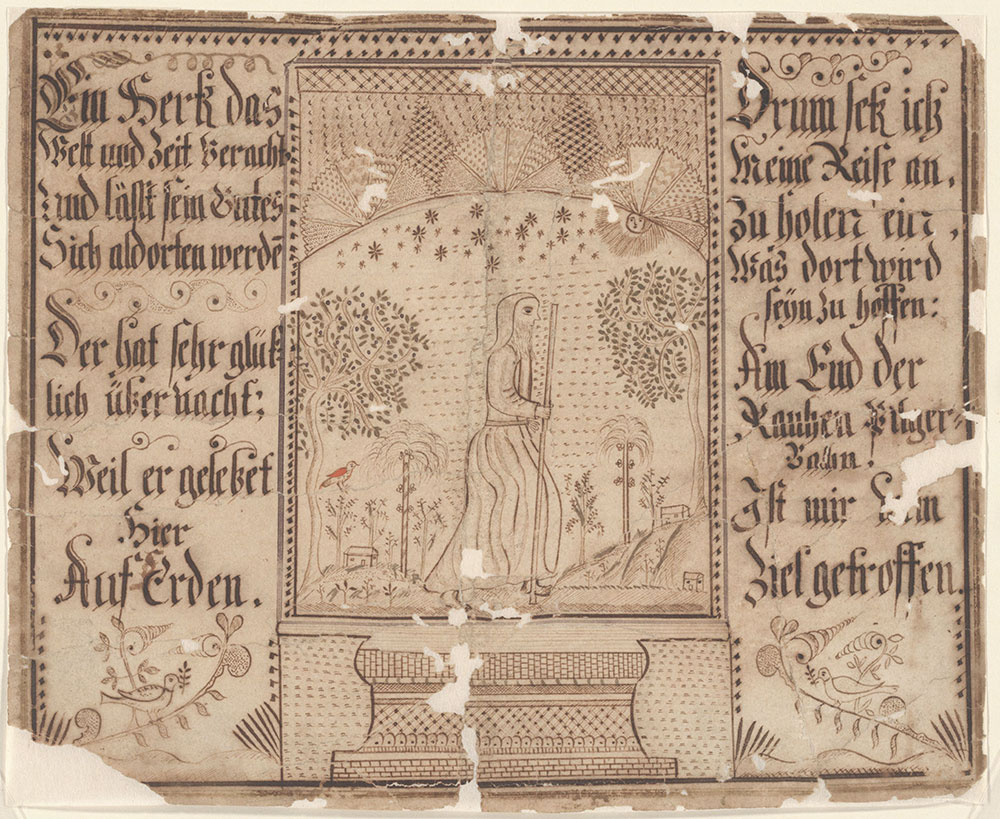 Ein Hertz das
Welt und Zeit Veracht
Und lässt sein Gutes
Sich aldorten werdē
Der hat sehr glük-
lich über nacht;
Weil er gelebet
Hier
Auf Erden.
Drum setz ich
Meine Reise an,
Zu holen ein,
Was dort wird
seyn zu hoffen:
Am End der
Rauhen Pilger-
Bahn!
Ist mir
Ziel getroffen.